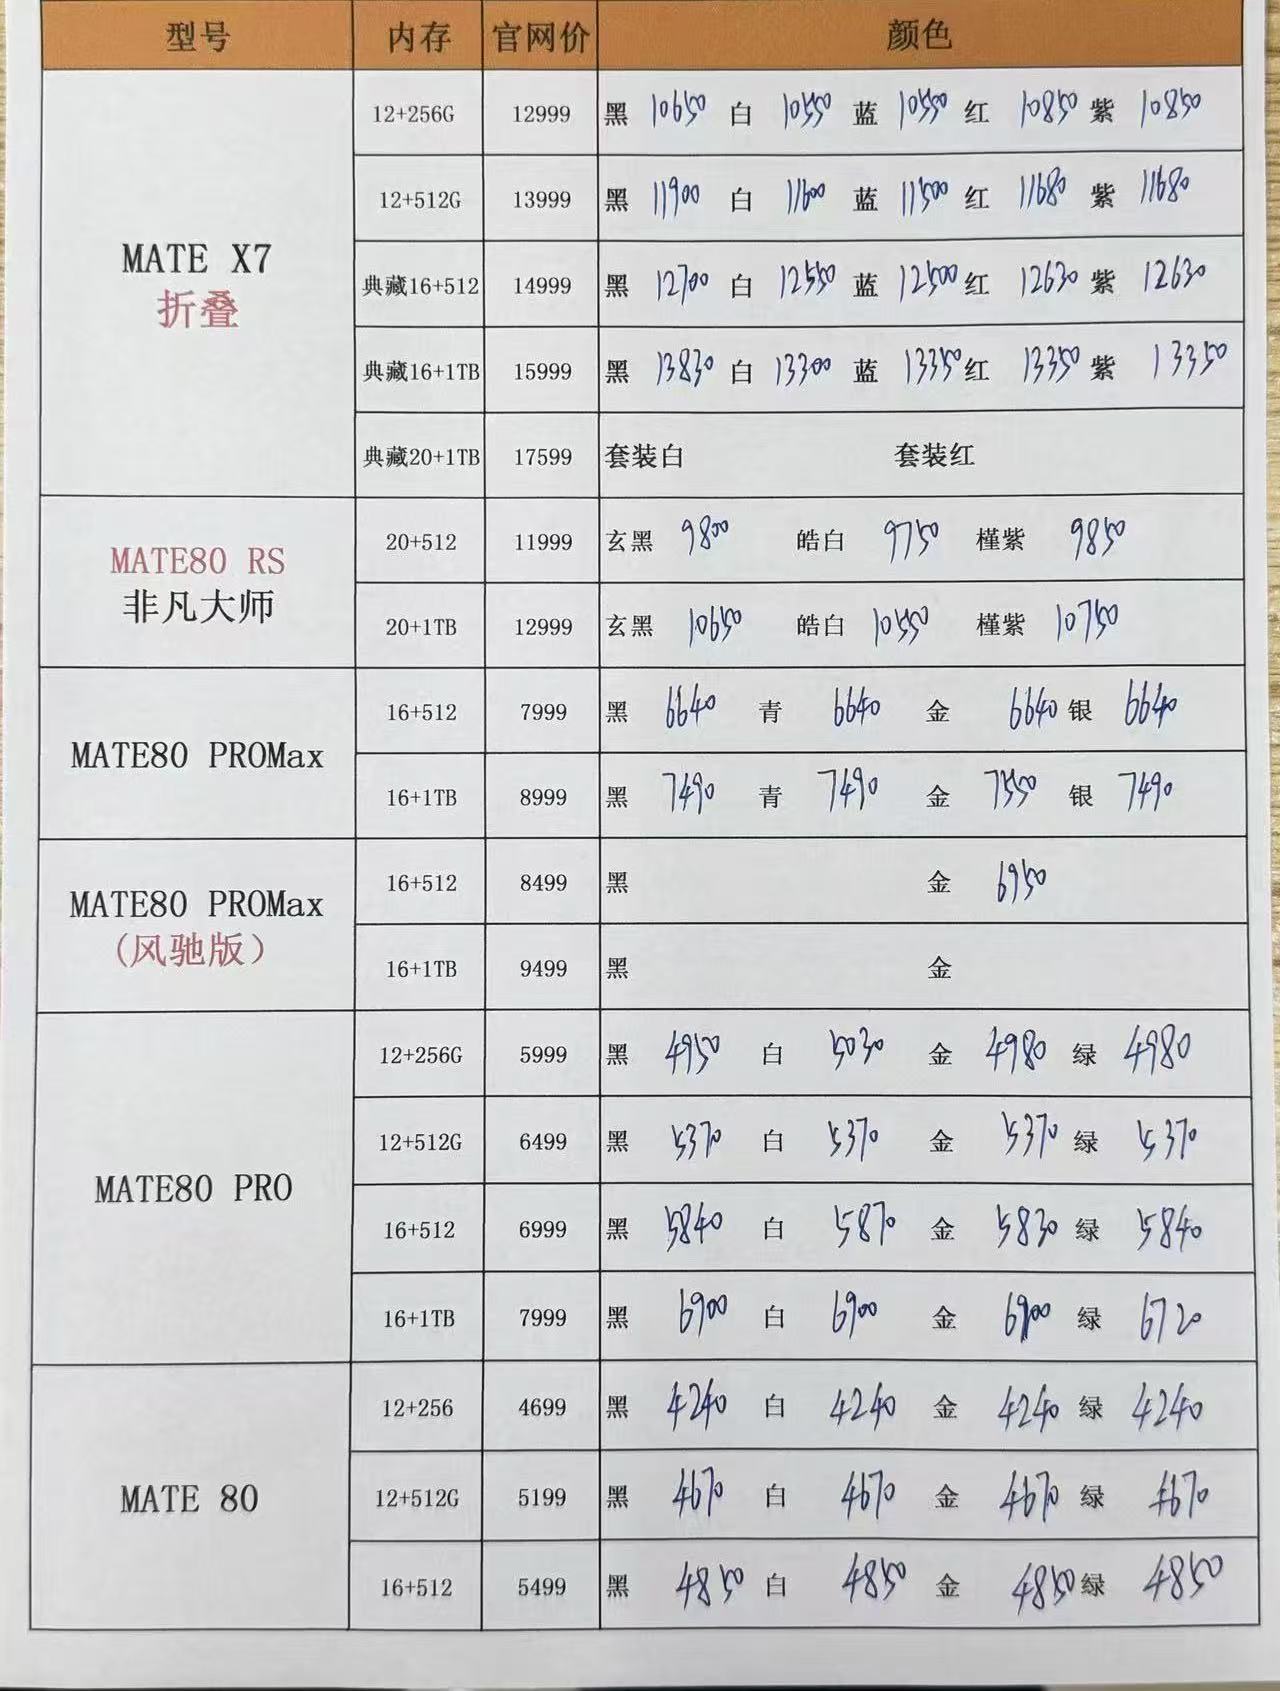 型号 内存 官网价 颜色
12+256G 12999 黑 10650 白 10550 蓝 10550 红 10850 紫 10850
12+512G 13999 黑 11900 白 11600 蓝 11500 红 11680 紫 11680
MATE X7
折叠
典藏16+512 14999 黑 12700 白 12550 蓝 12500 红 12630 紫 12630
典藏16+1TB 15999 黑 13830 白 13300 蓝 13350 红 13350 紫 13350
典藏20+1TB 17599 套装白 套装红
MATE80 RS
非凡大师
20+512 11999 玄黑 9800 皓白 9750 槿紫 9850
20+1TB 12999 玄黑 10650 皓白 10550 槿紫 10750
MATE80 PROMax
16+512 7999 黑 6640 青 6640 金 6640 银 6640
16+1TB 8999 黑 7490 青 7490 金 7550 银 7490
MATE80 PROMax
(风驰版)
16+512 8499 黑 金 6950
16+1TB 9499 黑 金
MATE80 PRO
12+256G 5999 黑 4950 白 5030 金 4980 绿 4980
12+512G 6499 黑 5370 白 5370 金 5370 绿 5370
16+512 6999 黑 5840 白 5870 金 5830 绿 5840
16+1TB 7999 黑 6900 白 6900 金 6900 绿 6720
MATE 80
12+256 4699 黑 4240 白 4240 金 4240 绿 4240
12+512G 5199 黑 4670 白 4670 金 4670 绿 4670
16+512 5499 黑 4850 白 4850 金 4850 绿 4850